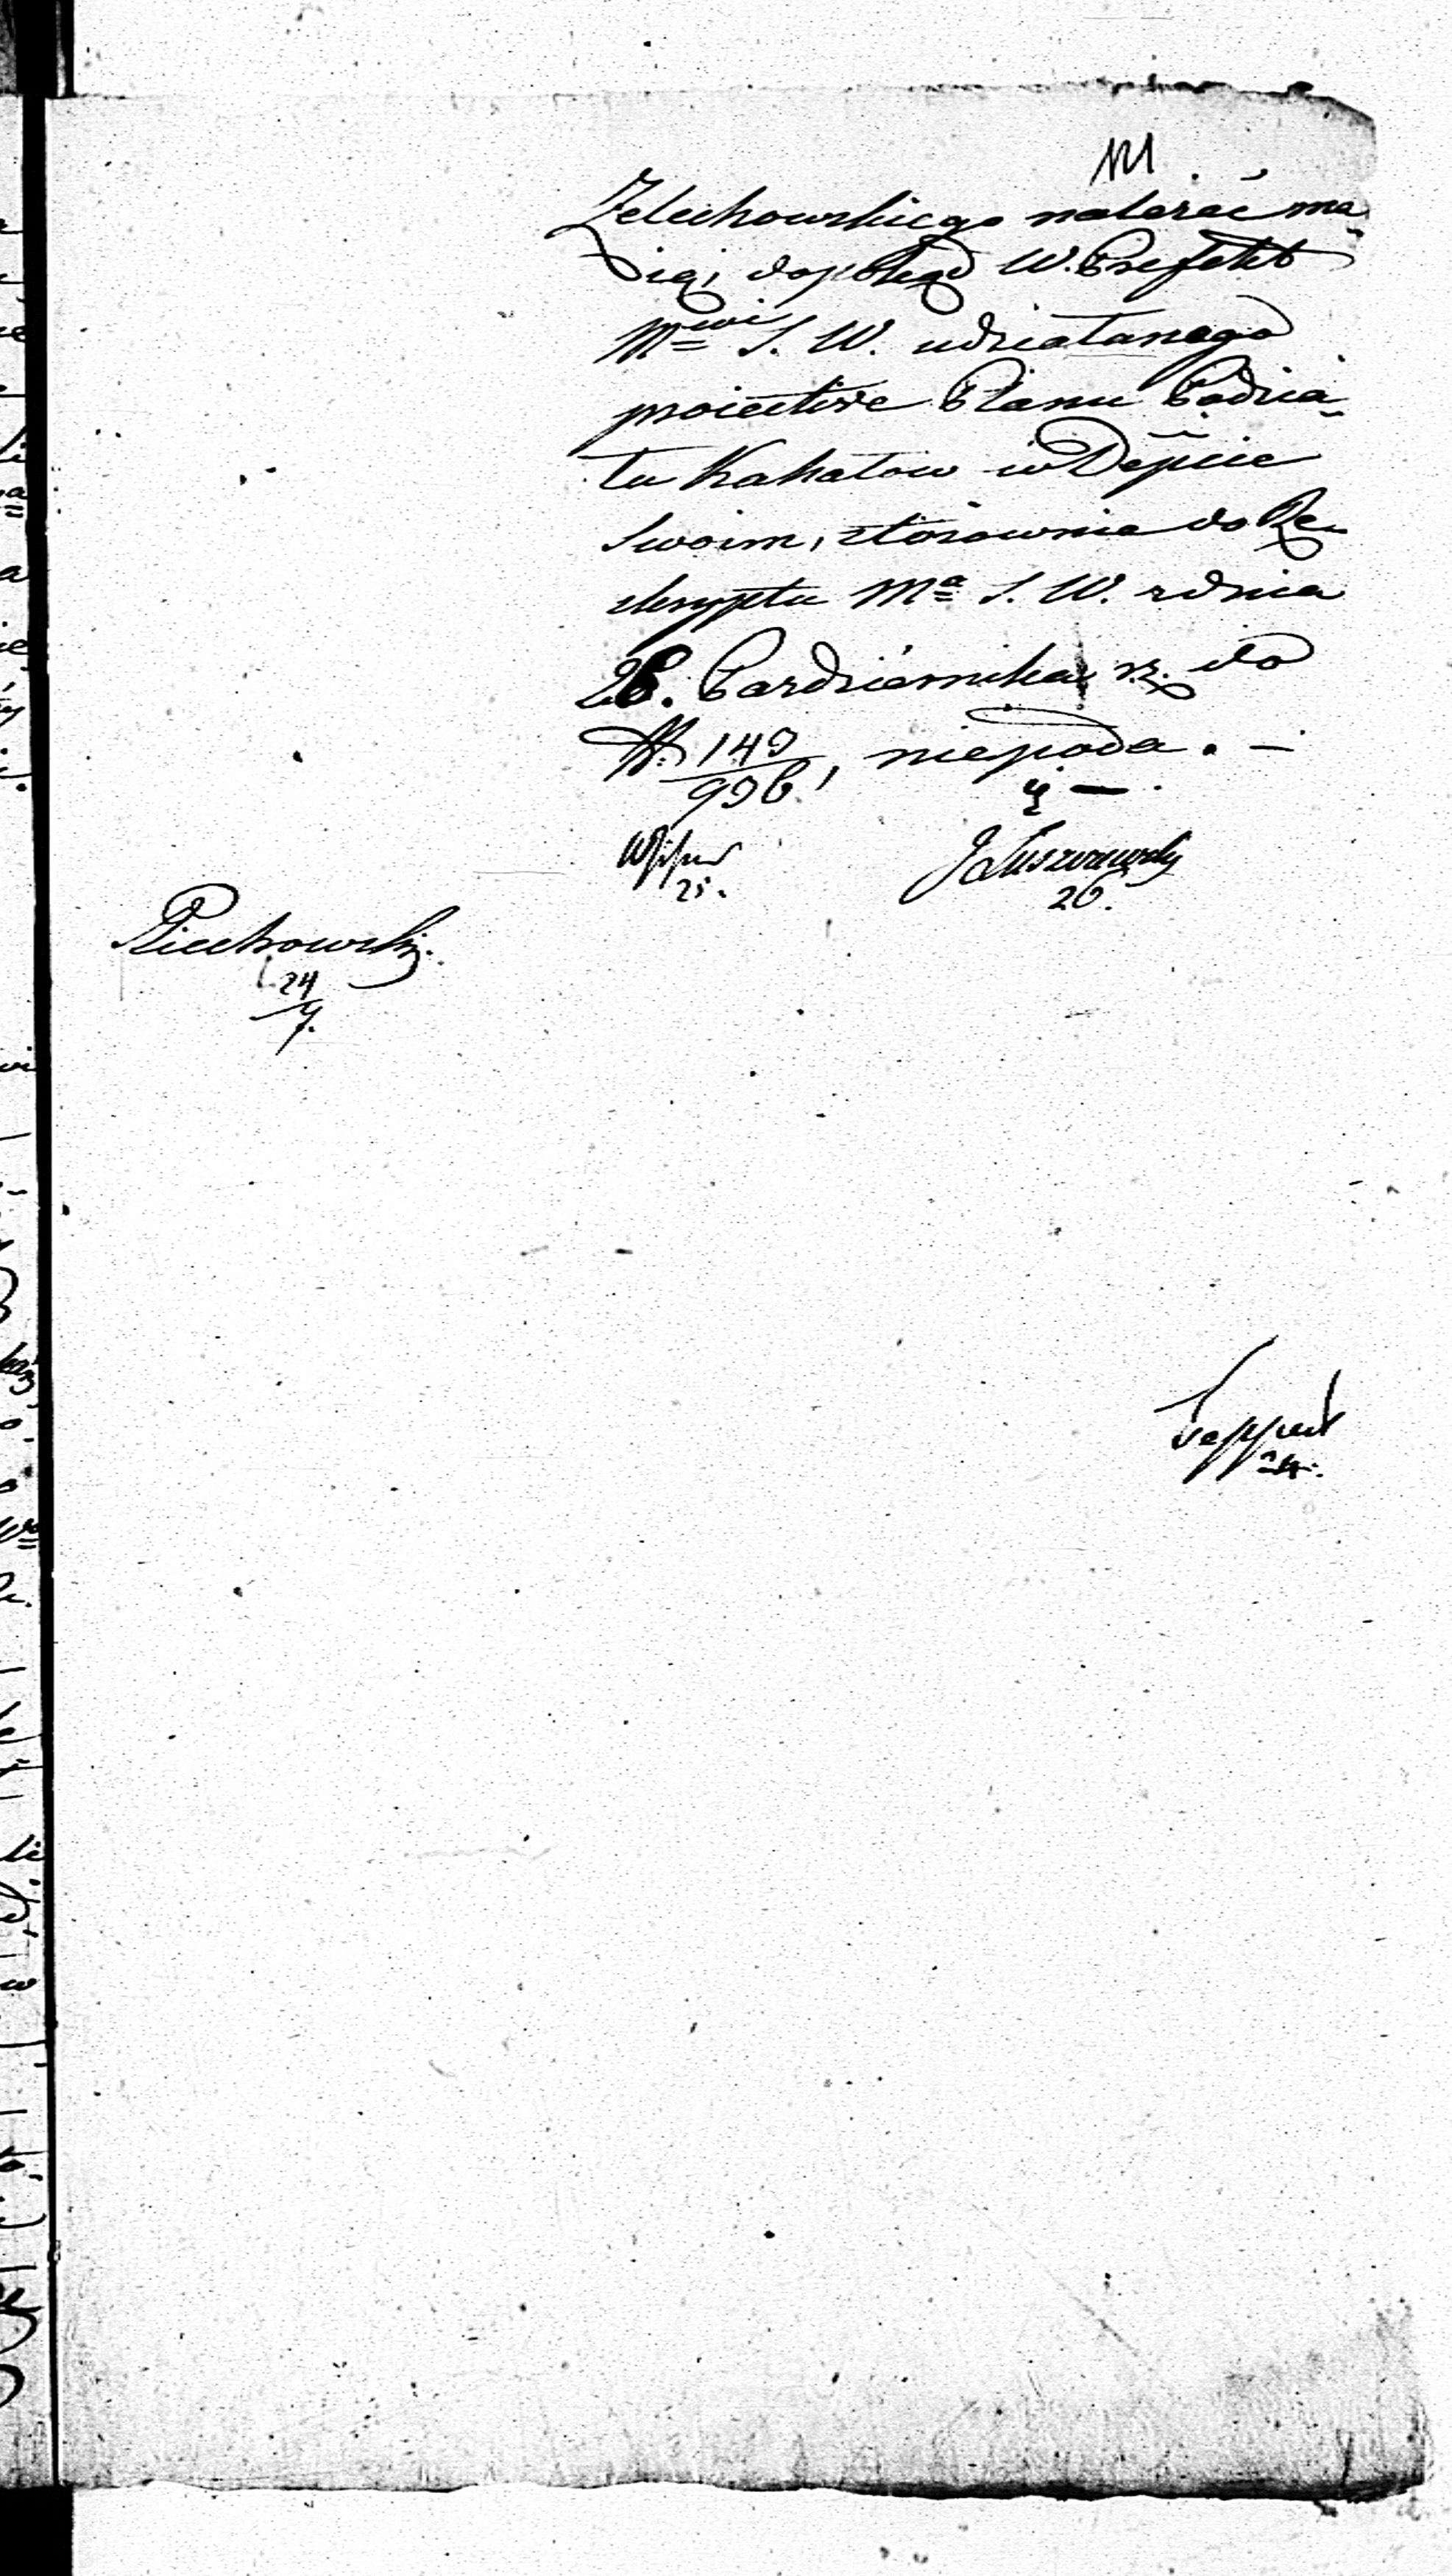 121
Zelechowskiego należeć ma-
ią, dopokąd W. Prefekt
Mwi S. W. udziałanego
proiektu Planu Podzia-
łu Kahałow w Depcie
Swoim, stosownie do Re-
skryptu Ma S. W. zdnia
26. Pazdziernika r. z. do
N. 149/996, niepoda. —
25.
J Łuszczewski
26.
Piechowski.
24
9.
Teppert
24.